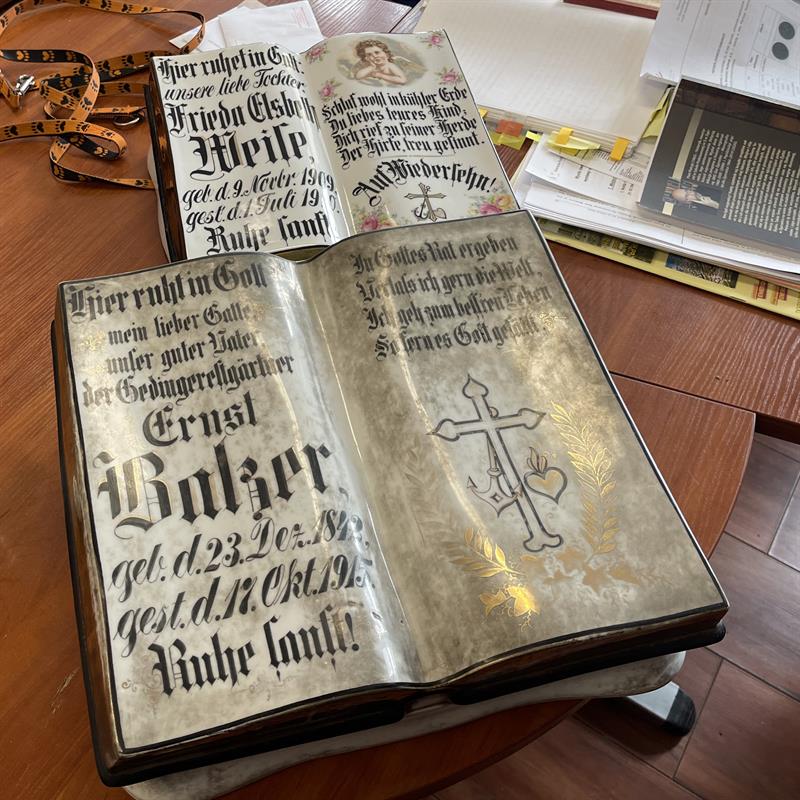 Hier ruhet in Gott
unsere liebe Tochter
Frieda Elsbeth
Weise,
geb. d. 9. Novbr. 1909,
gest. d. 1. Juli 1910.
Ruhe sanft!
Schlaf wohl in kühler Erde
Du liebes teures Kind,
Dich rief zu seiner Herde
Der Hirte treu gesinnt.
Auf Wiedersehn!
Hier ruht in Gott
mein lieber Gatte
unser guter Vater
der Gedingerestgärtner
Ernst
Balzer,
geb. d. 23. Dez. 1842,
gest. d. 17. Okt. 1915.
Ruhe sanft!
In Gottes Rat ergeben
Verlass ich gern die Welt,
Ich geh zum bessren Leben
Sofern es Gott gefällt.